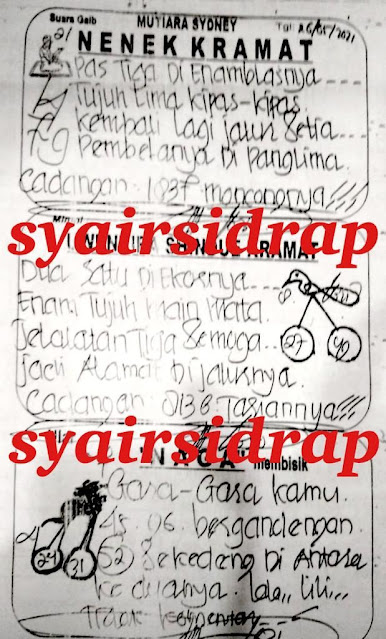 Suara Gaib MUTIARA SYDNEY
21 NENEK KRAMAT
Pas Tiga Di Enamblasnya
Tujuh Lima Kipas-Kipas.
Kembali Lagi Jauh Setia
79 Pembelanya Di Panglima.
Cadangan: 1837
syairsidrap
KRAMAT
Dua Satu Di Ekornya
Enam Tujuh Main Mata
Jelasatan Tiga Semoga
27 40
Jadi Alamat Dijaluknya.
Cadangan: 2136 Tarjannya!!!
syairsidrap
NAGA membisik
Gara-Gasa kamu.
48.96. bergandengan.
24 31 52 Sekedeng Di Antara
Ke duanya. lala,, lili,,
Tidak